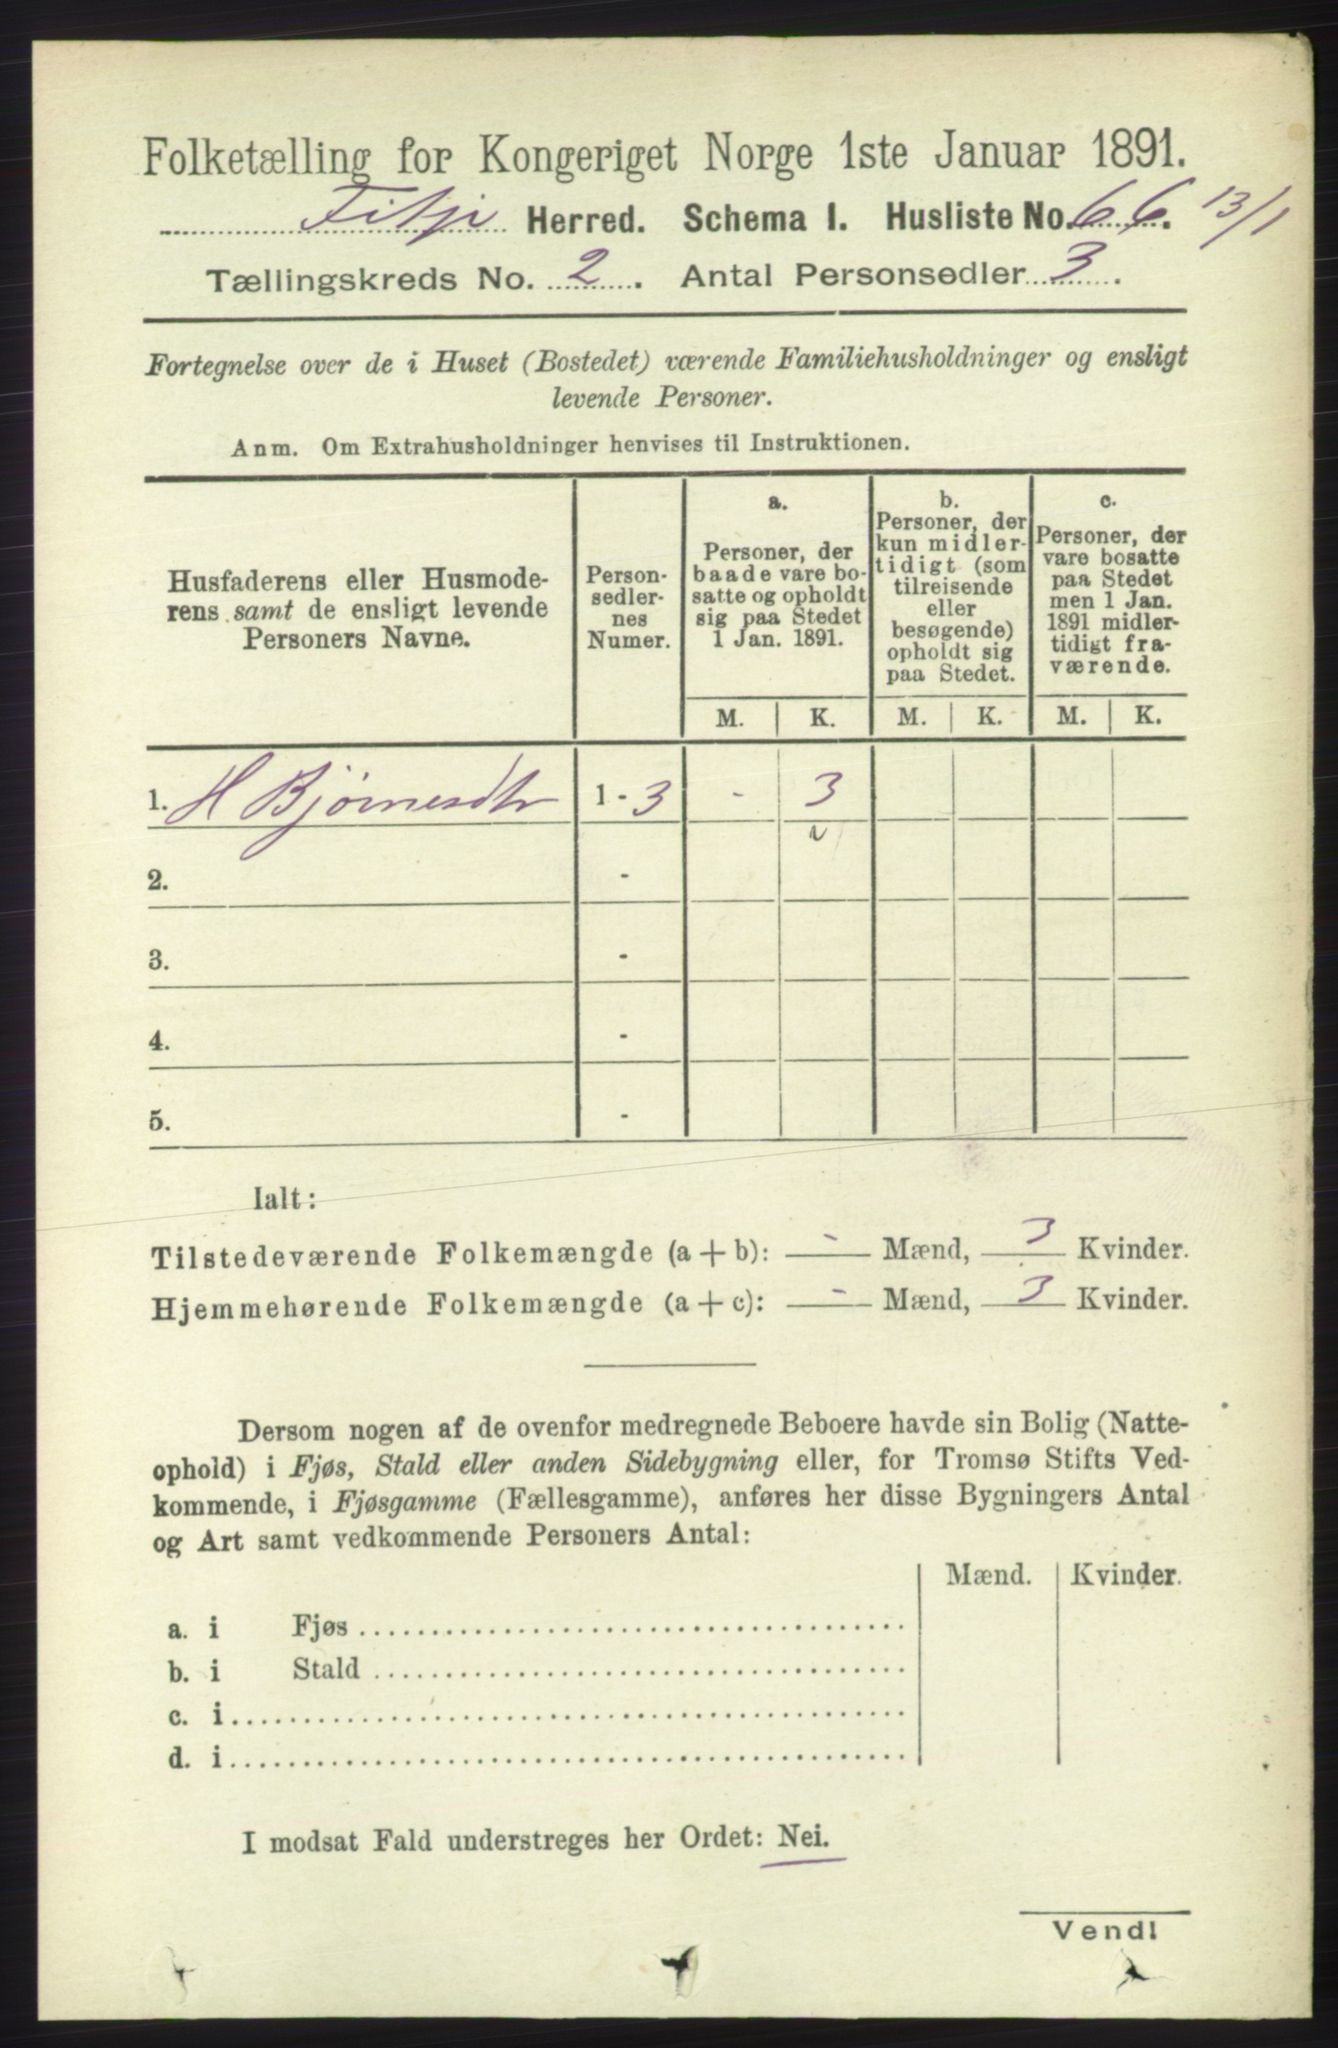 Folketælling for Kongeriget Norge 1ste Januar 1891.
Fitje Herred. Schema I. Husliste No. 66. 13/1
Tællingskreds No. 2. Antal Personsedler 3.
Fortegnelse over de i Huset (Bostedet) værende Familiehusholdninger og ensligt
levende Personer.
Anm. Om Extrahusholdninger henvises til Instruktionen.
Husfaderens eller Husmode-
rens samt de ensligt levende
Personers Navne.
Person-
sedler-
nes
Numer.
a.
Personer, der
baade vare bo-
satte og opholdt
sig paa Stedet
1 Jan. 1891.
b.
Personer, der
kun midler-
tidigt (som
tilreisende
eller
besøgende)
opholdt sig
paa Stedet.
c.
Personer, der
vare bosatte
paa Stedet
men 1 Jan.
1891 midler-
tidigt fra-
værende.
M. K. M. K. M. K.
1. H Bjørnesdtr 1 - 3 - 3
2. -
3. -
4. -
5. -
Ialt:
Tilstedeværende Folkemængde (a + b): - Mænd, 3 Kvinder.
Hjemmehørende Folkemængde (a + c): - Mænd, 3 Kvinder.
Dersom nogen af de ovenfor medregnede Beboere havde sin Bolig (Natte-
ophold) i Fjøs, Stald eller anden Sidebygning eller, for Tromsø Stifts Ved-
kommende, i Fjøsgamme (Fællesgamme), anføres her disse Bygningers Antal
og Art samt vedkommende Personers Antal:
Mænd. Kvinder.
a. i Fjøs
b. i Stald
c. i
d. i
I modsat Fald understreges her Ordet: Nei.
Vend!